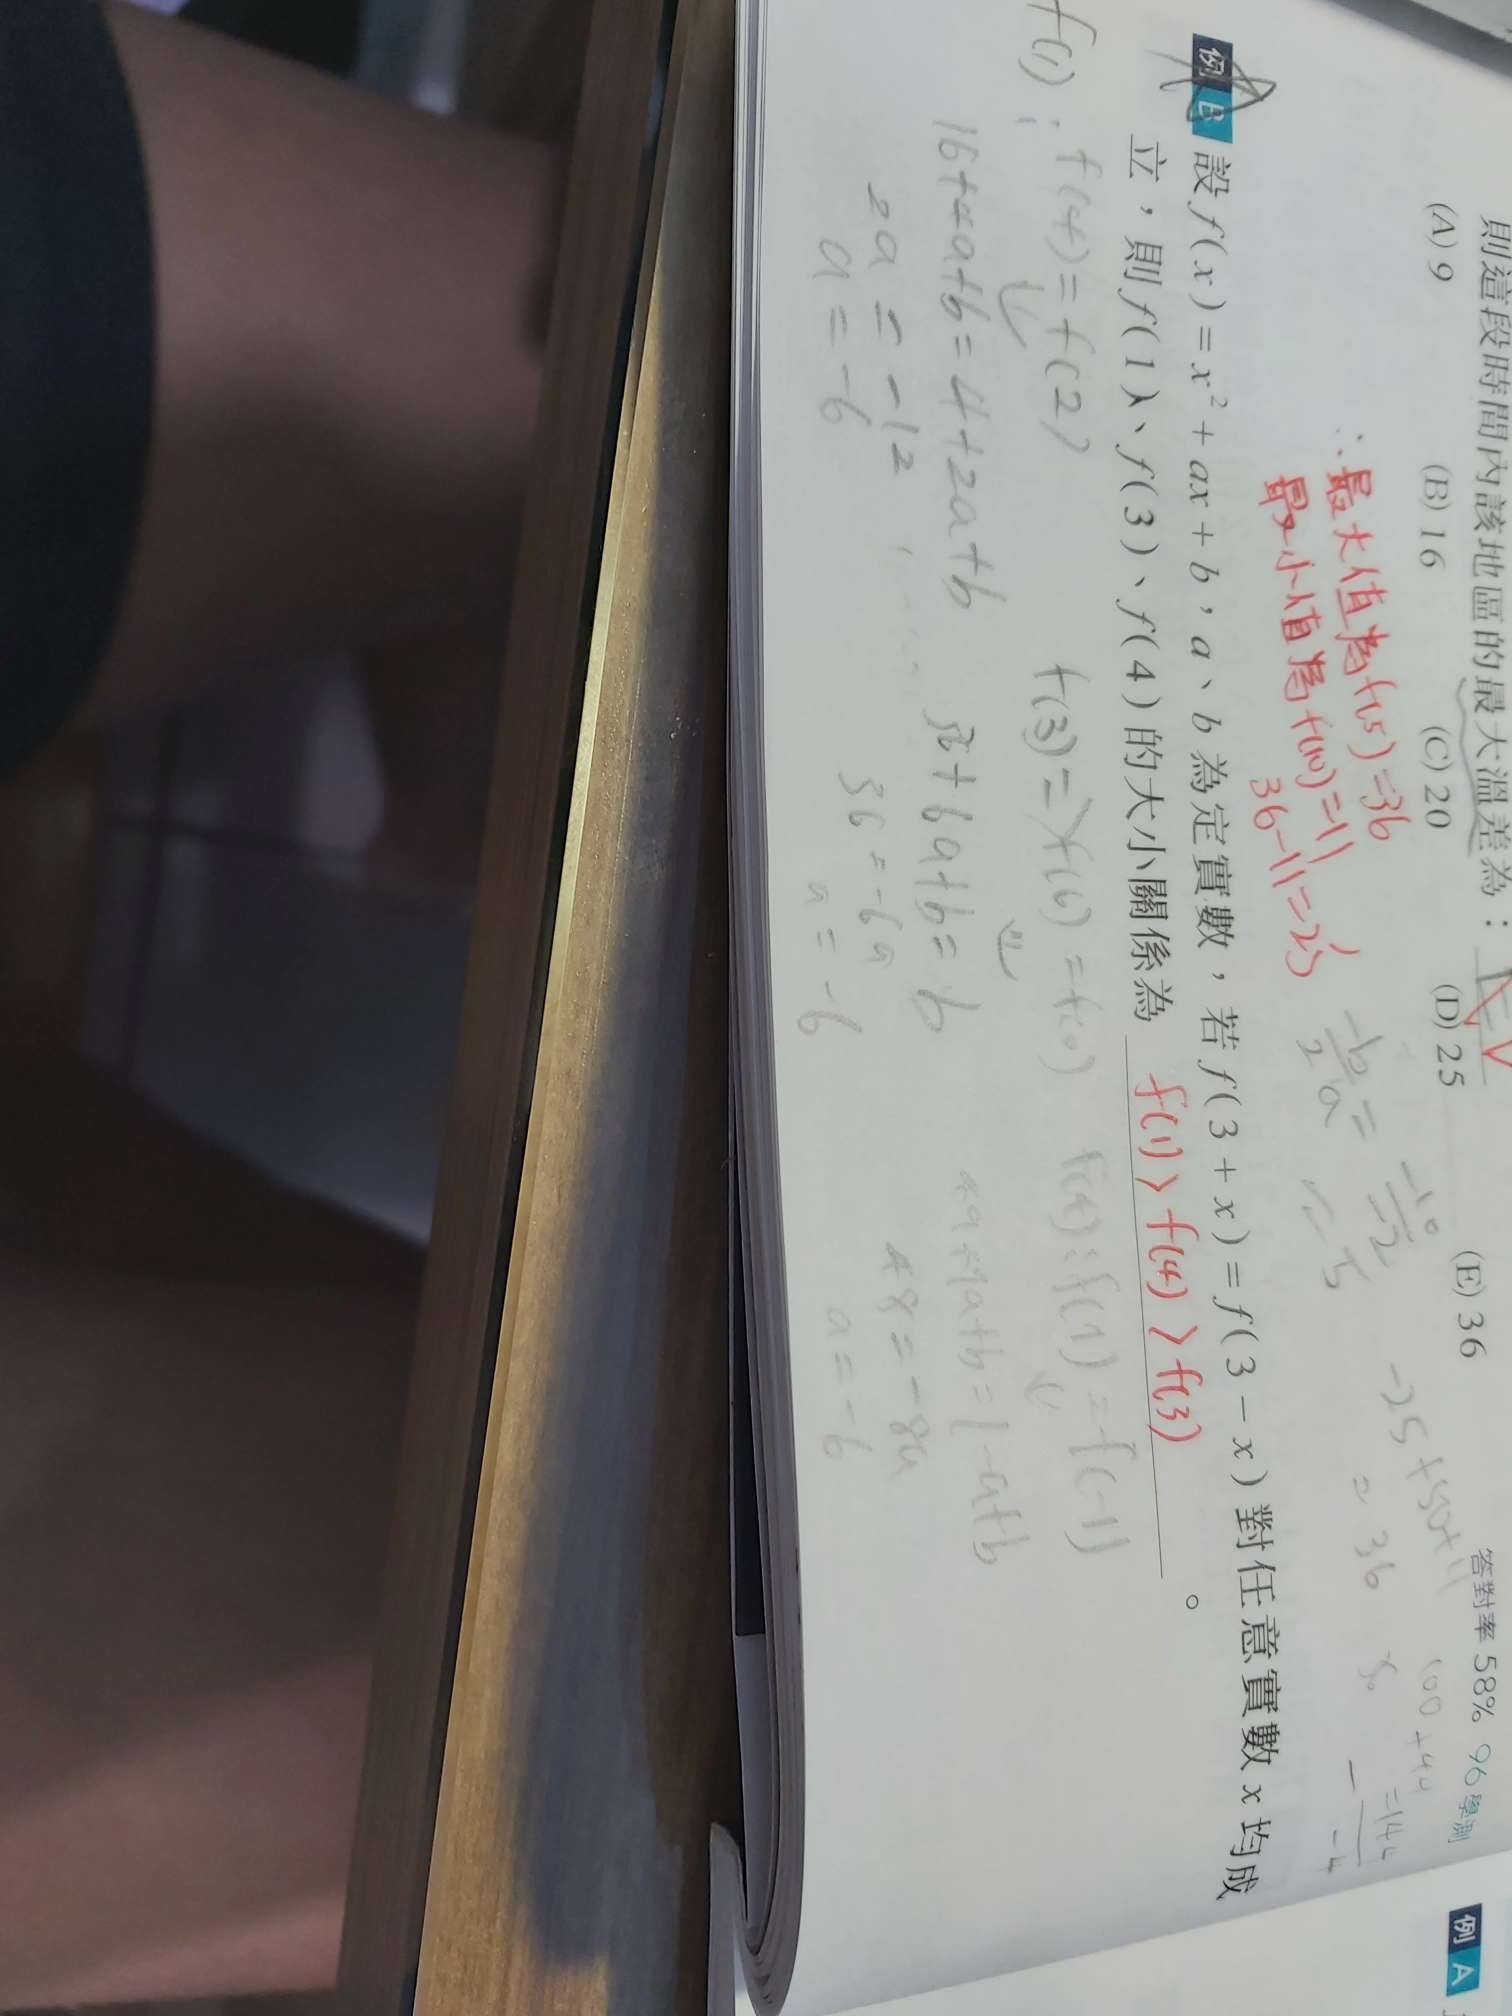 則這段時間內該地區的最大溫差為：
答對率 58% 96學測
(A) 9 (B) 16 (C) 20 (D) 25 (E) 36
∴最大值為f(5)=36
最小值為f(10)=11
36-11=25
-b/2a = -10/-2 = 5
-25+50+11
= 36
100+44
=144
-4
例 B 設 f(x)=x²+ax+b，a、b 為定實數，若 f(3+x)=f(3-x) 對任意實數 x 均成
立，則 f(1)、f(3)、f(4) 的大小關係為 f(1)>f(4)>f(3) 。
f(1): f(4)=f(2)
16+4a+b=4+2a+b
2a=-12
a=-6
f(3)= f(6)=f(0)
36+6a+b=b
36=-6a
a=-6
f(4): f(7)=f(-1)
49+7a+b=1-a+b
48=-8a
a=-6
例 A